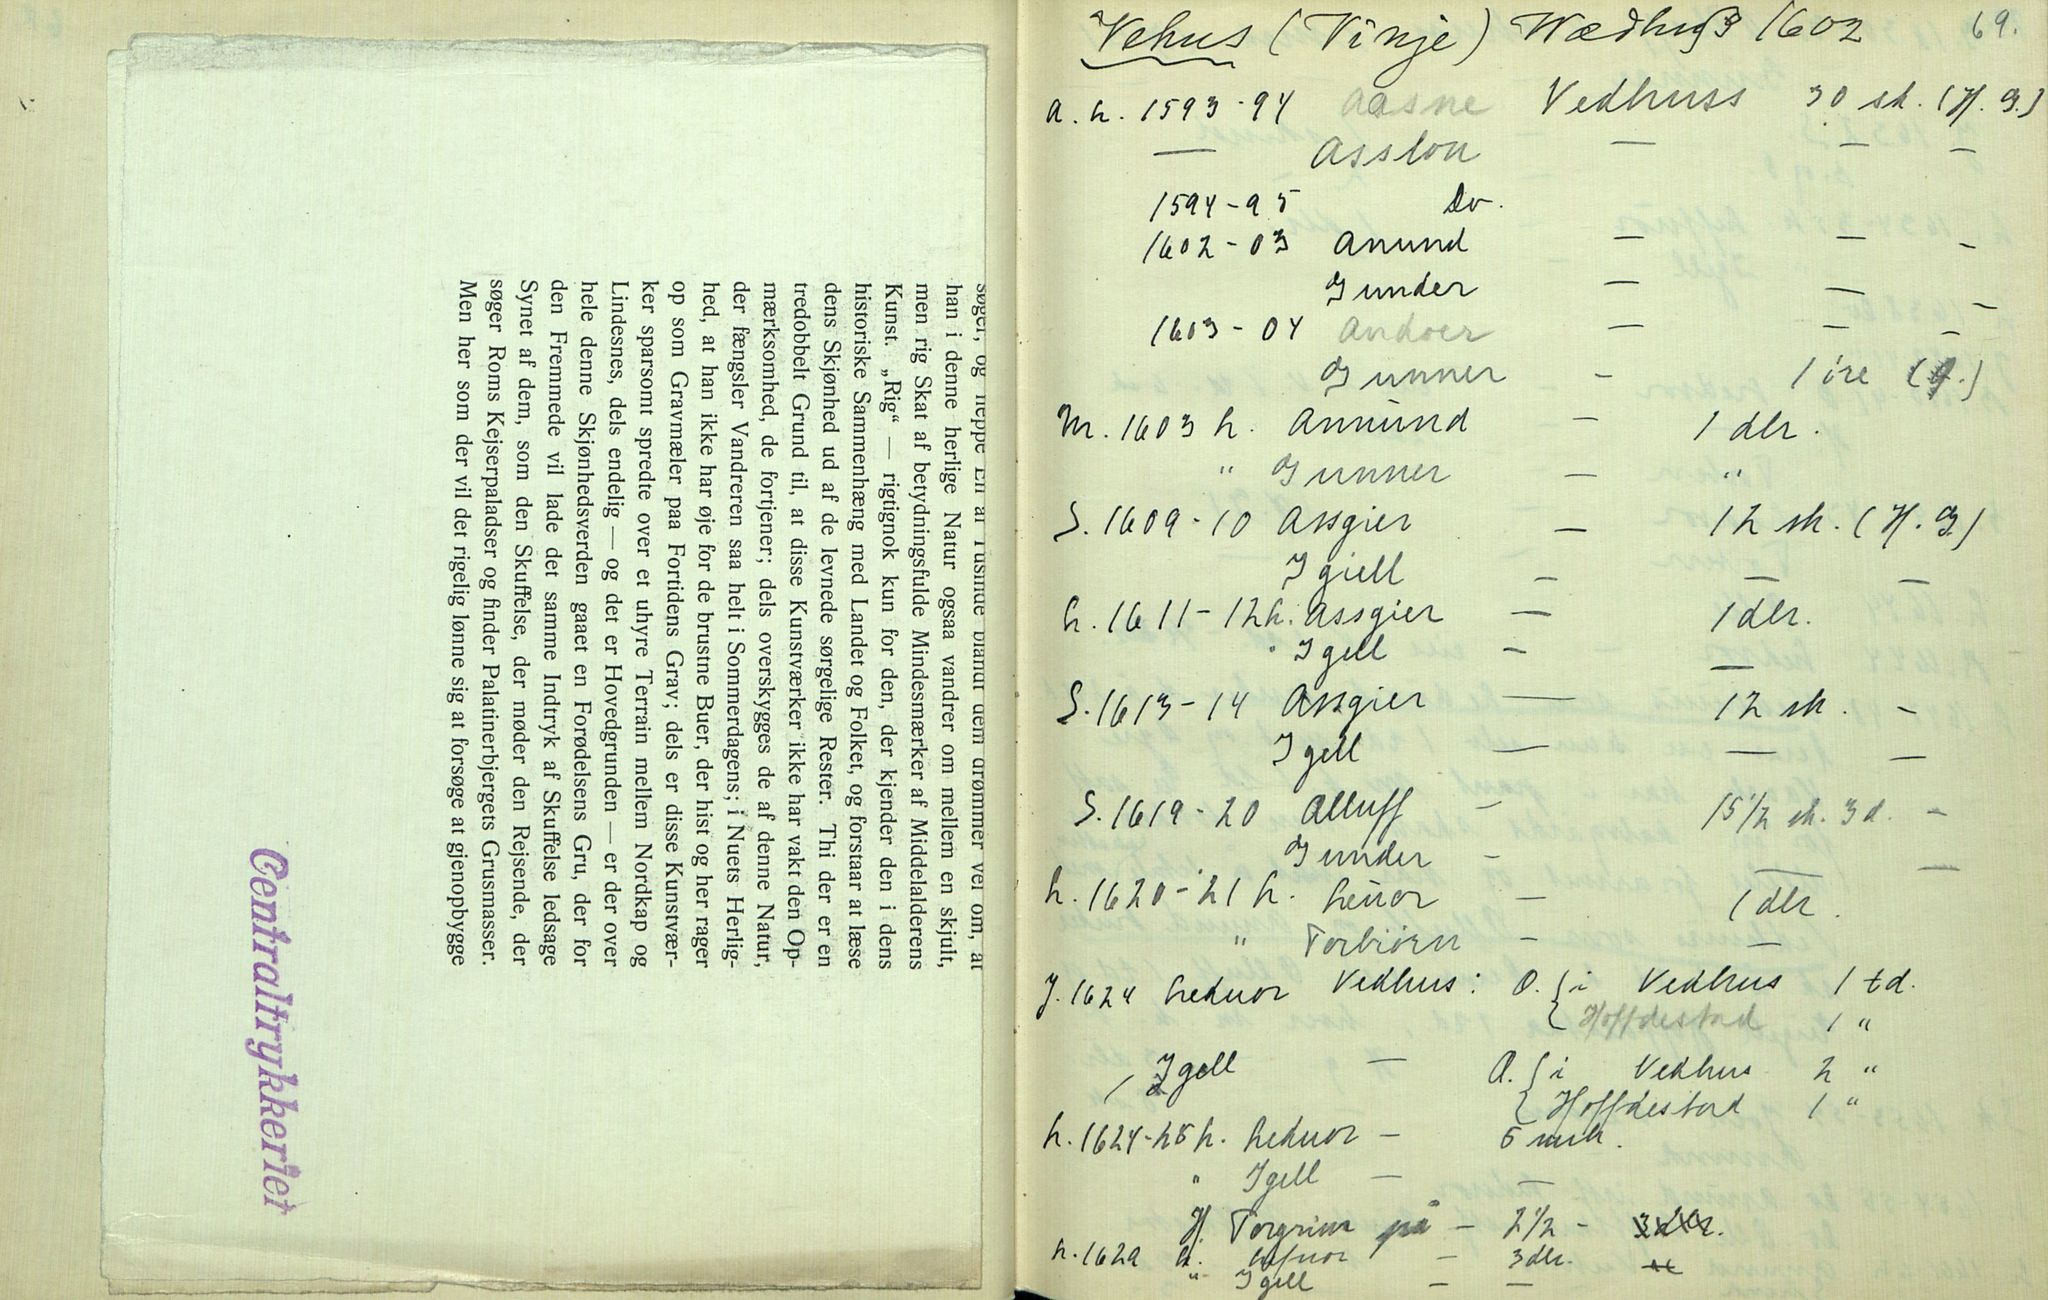 søger, og neppe En af Tusinde blandt dem drømmer vel om, at
han i denne herlige Natur ogsaa vandrer om mellem en skjult,
men rig Skat af betydningsfulde Mindesmærker af Middelalderens
Kunst. „Rig“ — rigtignok kun for den, der kjender den i dens
historiske Sammenhæng med Landet og Folket, og forstaar at læse
dens Skjønhed ud af de levnede sørgelige Rester. Thi der er en
tredobbelt Grund til, at disse Kunstværker ikke har vakt den Op-
mærksomhed, de fortjener; dels overskygges de af denne Natur,
der fængsler Vandreren saa helt i Sommerdagens; i Nuets Herlig-
hed, at han ikke har øje for de brustne Buer, der hist og her rager
op som Gravmæler paa Fortidens Grav; dels er disse Kunstvær-
ker sparsomt spredte over et uhyre Terrain mellem Nordkap og
Lindesnes, dels endelig — og det er Hovedgrunden — er der over
hele denne Skjønhedsverden gaaet en Forødelsens Gru, der for
den Fremmede vil lade det samme Indtryk af Skuffelse ledsage
Synet af dem, som den Skuffelse, der møder den Rejsende, der
søger Roms Kejserpaladser og finder Palatinerbjergets Grusmasser.
Men her som der vil det rigelig lønne sig at forsøge at gjenopbygge
Centraltrykkeriet
69.
Vehus (Vinje) Wædhuss 1602
a. L. 1593-94 Aasne Vedhuss 30 sk. (H. G.)
— Asslou — — —
1594-95 Do.
1602-03 Anund — — —
Gunder — — —
1603-04 Andoer — — —
Gunner — 1 öre
M. 1603 h. Annund — 1 dlr.
" Gunner — "
S. 1609-10 Assgier — 12 sk. (H. G)
Igiell — — —
L. 1611-12 h. Assgier — 1 dlr.
" Igell — —
S. 1613-14 Assgier — 12 sk. —
Igell — — —
S. 1619-20 Alluff — 15 1/2 sk. 3 d. —
Gunder — — —
L. 1620-21 h. Leuor — 1 dlr.
" Torbiörn — —
J. 1624 Leduor Vedhus: O. { i Vedhus 1 td.
{ Hoffdestad 1 "
Igell — O. { i Vedhus 2 "
{ Hoffdestad 1 "
L. 1624-25 h. Leduor — 5 mrk.
" Igell — —
H. Torgrim på — 2 1/2 — 3 dlr.
L. 1629 h. Lefuor — 3 dlr.
" Igell — —